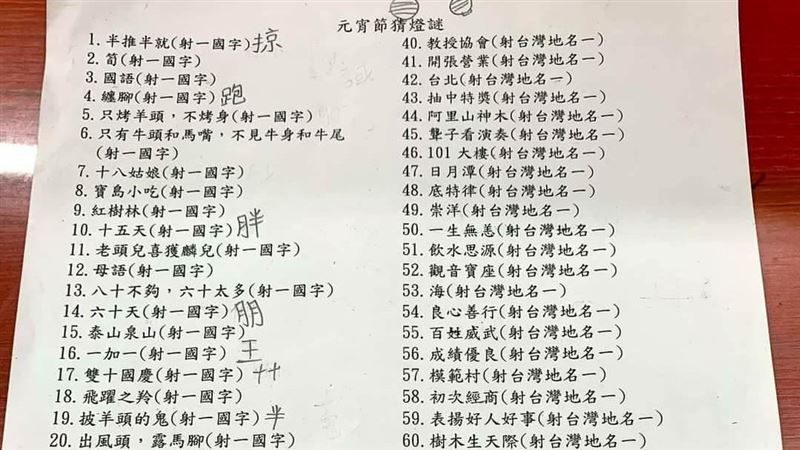 元宵節猜燈謎
1. 半推半就(射一國字)掠
2. 筍(射一國字)
3. 國語(射一國字)
4. 纏腳(射一國字)跑
5. 只烤羊頭，不烤身(射一國字)
6. 只有牛頭和馬嘴，不見牛身和牛尾
(射一國字)
7. 十八姑娘(射一國字)
8. 寶島小吃(射一國字)
9. 紅樹林(射一國字)
10. 十五天(射一國字)胖
11. 老頭兒喜獲麟兒(射一國字)
12. 母語(射一國字)
13. 八十不夠，六十太多(射一國字)
14. 六十天(射一國字)朋
15. 泰山泉山(射一國字)
16. 一加一(射一國字)王
17. 雙十國慶(射一國字)艹
18. 飛躍之羚(射一國字)
19. 披羊頭的鬼(射一國字)半
20. 出風頭，露馬腳(射一國字)
40. 教授協會(射台灣地名一)
41. 開張營業(射台灣地名一)
42. 台北(射台灣地名一)
43. 抽中特獎(射台灣地名一)
44. 阿里山神木(射台灣地名一)
45. 聾子看演奏(射台灣地名一)
46. 101大樓(射台灣地名一)
47. 日月潭(射台灣地名一)
48. 底特律(射台灣地名一)
49. 崇洋(射台灣地名一)
50. 一生無恙(射台灣地名一)
51. 飲水思源(射台灣地名一)
52. 觀音寶座(射台灣地名一)
53. 海(射台灣地名一)
54. 良心善行(射台灣地名一)
55. 百姓威武(射台灣地名一)
56. 成績優良(射台灣地名一)
57. 模範村(射台灣地名一)
58. 初次經商(射台灣地名一)
59. 表揚好人好事(射台灣地名一)
60. 樹木生天際(射台灣地名一)